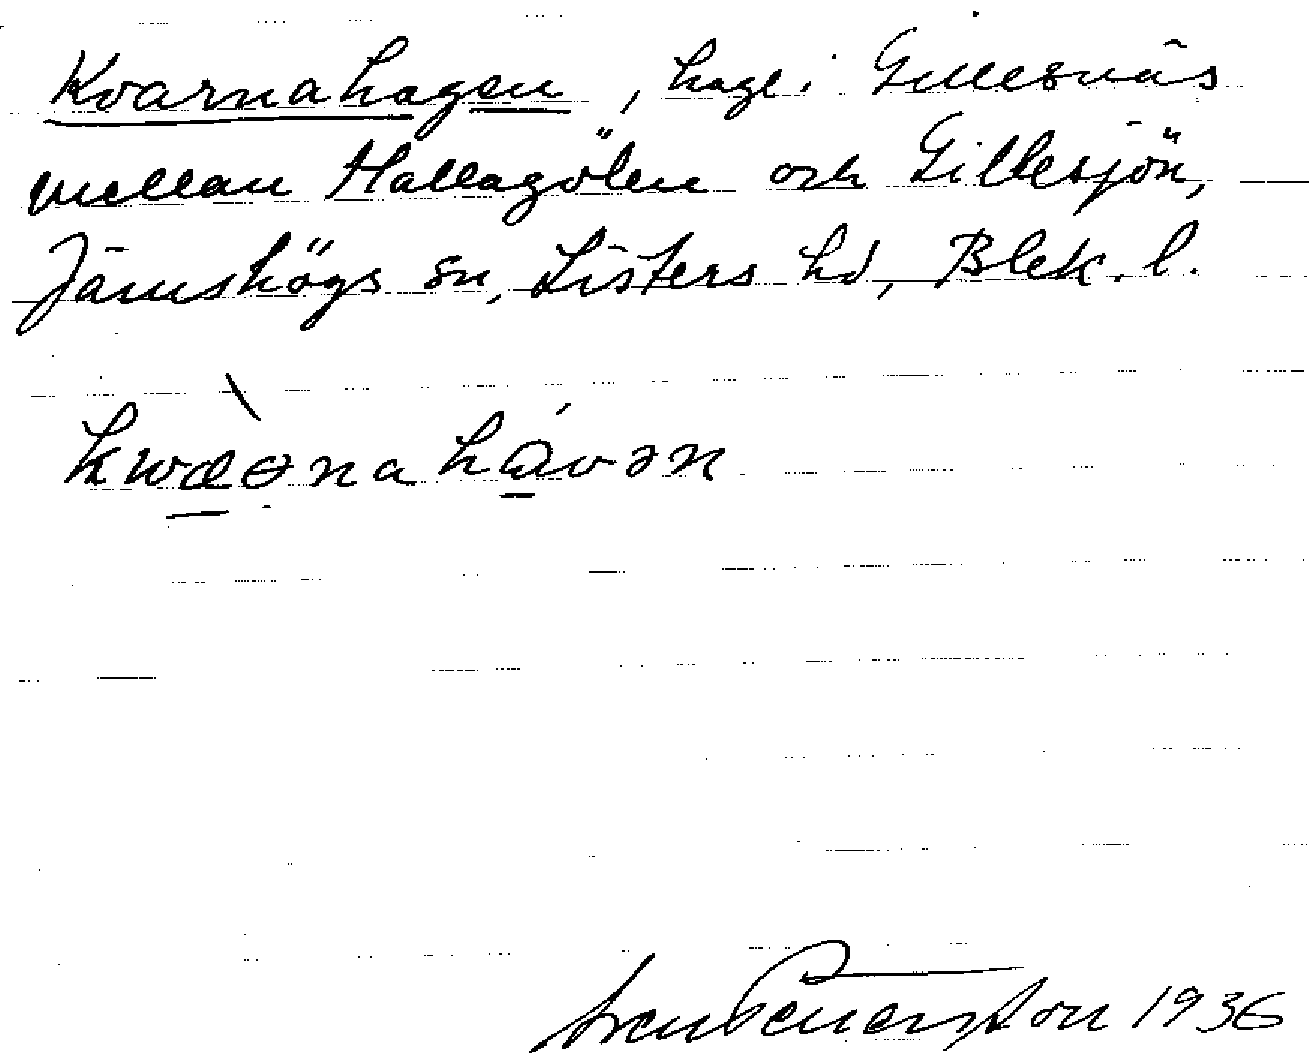 Kvarnahagen, hage i Gillesnäs
mellan Hallagölen och Gillesjön,
Jämshögs sn, Listers hd, Blek. l.
kwæənahávən
Sven Benerston 1936